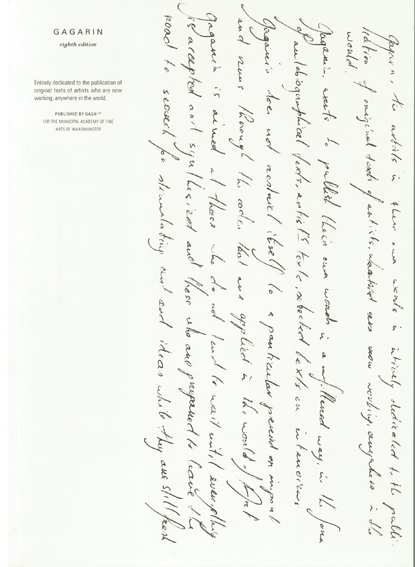 GAGARIN
eighth edition
Entirely dedicated to the publication of
original texts of artists who are now
working, anywhere in the world.
PUBLISHED BY GAGA
FOR THE MUNICIPAL ACADEMY OF FINE
ARTS OF WAASMUNSTER
Gagarin, the artists in their own words is entirely dedicated to the publi-
cation of original texts of artists, who are now working, anywhere in the
world.
Gagarin wants to publish their own words in a unfiltered way, in the form
of autobiographical texts, artist's texts, selected texts or interviews
Gagarin does not restrict itself to a particular period or
and runs through the codes that are applied in the world of Art
Gagarin is aimed at those who do not tend to wait until everything
is accepted and synthesized and those who are prepared to leave the
road to search for stimulating art and ideas while they are still fresh